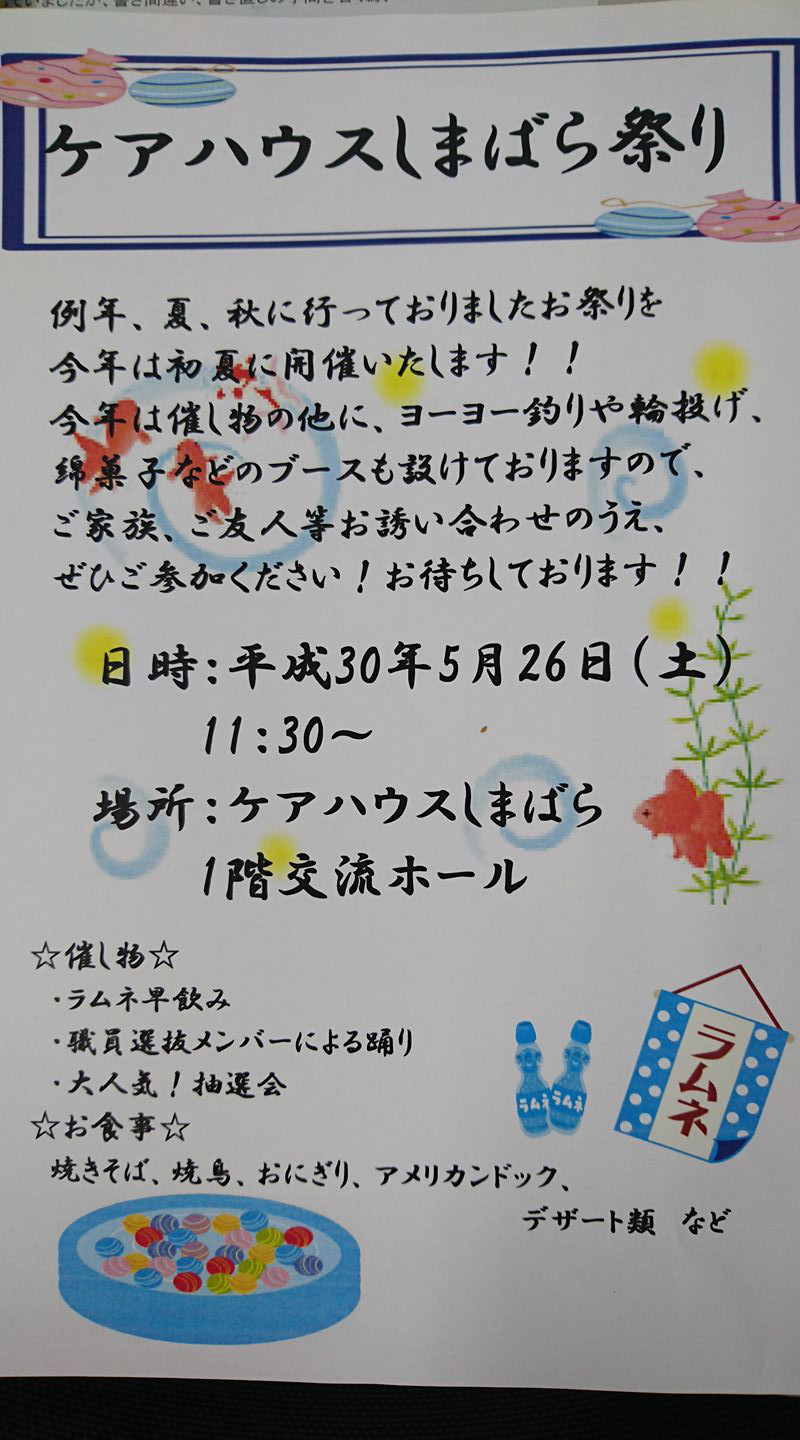 ケアハウスしまばら祭り
例年、夏、秋に行っておりましたお祭りを
今年は初夏に開催いたします！！
今年は催し物の他に、ヨーヨー釣りや輪投げ、
綿菓子などのブースも設けておりますので、
ご家族、ご友人等お誘い合わせのうえ、
ぜひご参加ください！お待ちしております！！
日時：平成30年5月26日（土）
11：30～
場所：ケアハウスしまばら
1階交流ホール
☆催し物☆
・ラムネ早飲み
・職員選抜メンバーによる踊り
・大人気！抽選会
☆お食事☆
焼きそば、焼鳥、おにぎり、アメリカンドック、
デザート類　など
ラムネ
ラムネ
ラムネ